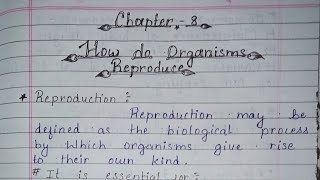 Chapter - 8
How do Organisms
Reproduce
* Reproduction :
Reproduction may be
defined as the biological process
by which organisms give rise
to their own kind.
# It is essential for :